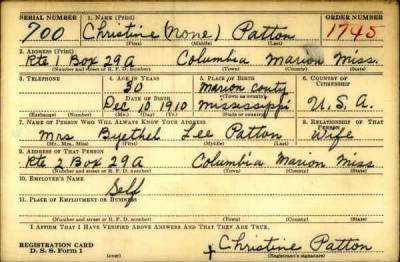 SERIAL NUMBER 1. NAME (Print) ORDER NUMBER
700 Christine (None) Patton 1745
(First) (Middle) (Last)
2. ADDRESS (Print)
Rte 1 Box 29A Columbia Marion Miss.
(Number and street or R. F. D. number) (Town) (County) (State)
3. TELEPHONE 4. AGE IN YEARS 5. PLACE OF BIRTH 6. COUNTRY OF CITIZENSHIP
30 Marion County
DATE OF BIRTH (Town or county)
Dec 10 1910 Mississippi U.S.A.
(Exchange) (Number) (Mo.) (Day) (Yr.) (State or country)
7. NAME OF PERSON WHO WILL ALWAYS KNOW YOUR ADDRESS 8. RELATIONSHIP OF THAT PERSON
Mrs Byethel Lee Patton Wife
(Mr., Mrs., Miss) (First) (Middle) (Last)
9. ADDRESS OF THAT PERSON
Rte 2 Box 29A Columbia Marion Miss
(Number and street or R. F. D. number) (Town) (County) (State)
10. EMPLOYER'S NAME
Self
11. PLACE OF EMPLOYMENT OR BUSINESS
(Number and street or R. F. D. number) (Town) (County) (State)
I AFFIRM THAT I HAVE VERIFIED ABOVE ANSWERS AND THAT THEY ARE TRUE.
REGISTRATION CARD
D. S. S. Form 1 (over) Christine Patton
(Registrant's signature)